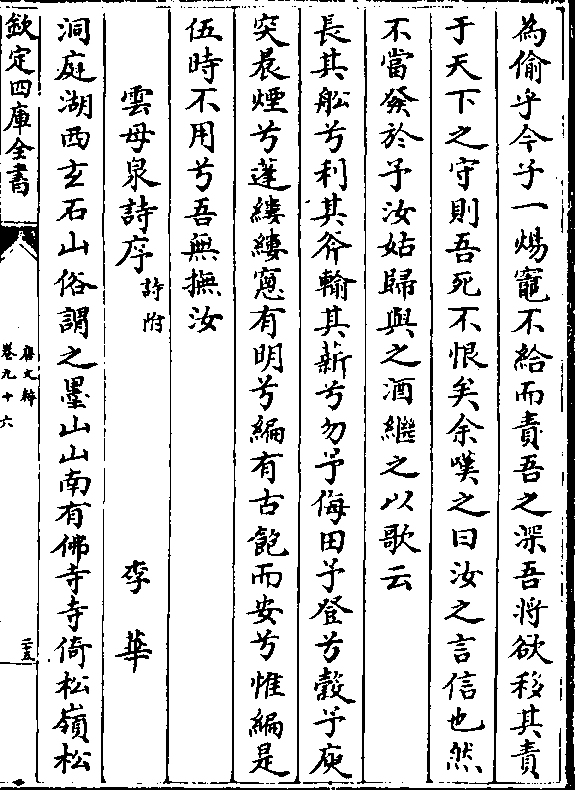 為偷乎今予一煬竈不給而責吾之深吾將欲移其責
于天下之守則吾死不恨矣余嘆之曰汝之言信也然
不當發於予汝姑歸與之酒繼之以歌云
長其舩兮利其斧輸其薪兮勿予侮田予登兮穀予庾
突晨煙兮蓬縷縷窻有明兮編有古飽而安兮惟編是
伍時不用兮吾無撫汝
雲母泉詩序 詩附 李華
洞庭湖西玄石山俗謂之墨山山南有佛寺寺倚松嶺松
欽定四庫全書
唐文粹
卷九十六
二五